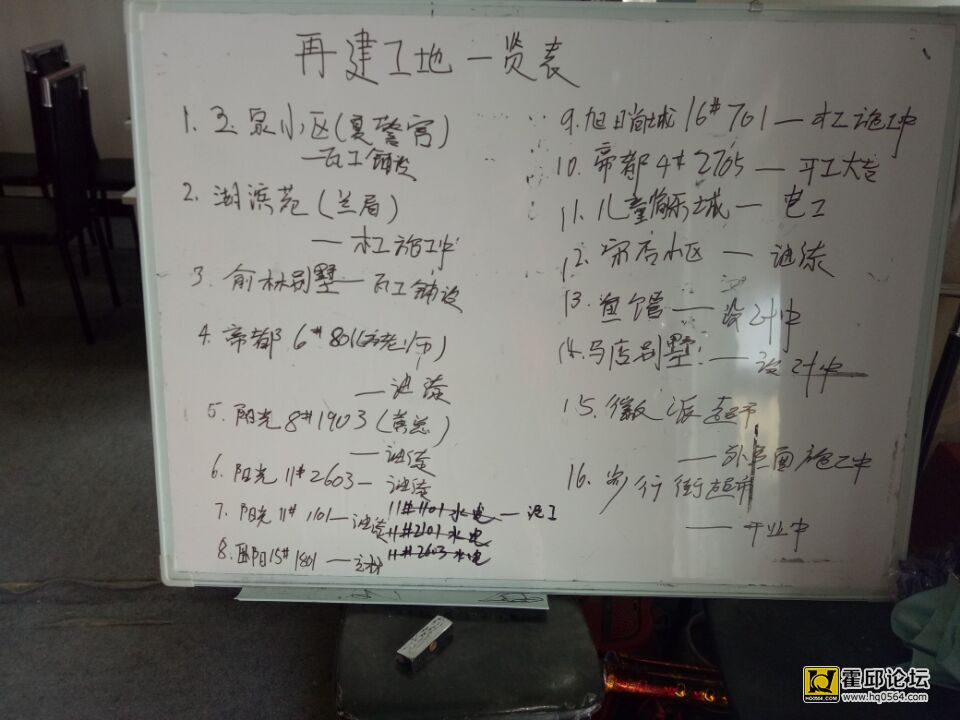 再建工地一览表
1. 玉泉小区(夏警官)
—瓦工铺设
2. 湖滨苑(兰眉)
—木工施工中
3. 俞林别墅—瓦工铺设
4. 帝都6#801
—油漆
5. 阳光8#1903(黄总)
—油漆
6. 阳光11#2603—油漆
7. 阳光11#1101—油漆
11#1101水电—泥工
11#2101水电
11#2603水电
8. 阳15#1801—主材
9. 旭日尚城16#701—木工施工中
10. 帝都4#2705—开工大吉
11. 儿童俱乐城—电工
12. 宋店小区—油漆
13. 鱼馆—设计中
14. 马店别墅—设计中
15. 徽派超市
—外立面施工中
16. 步行街超市
—开业中
霍邱论坛
HQ0564.COM
www.hq0564.com